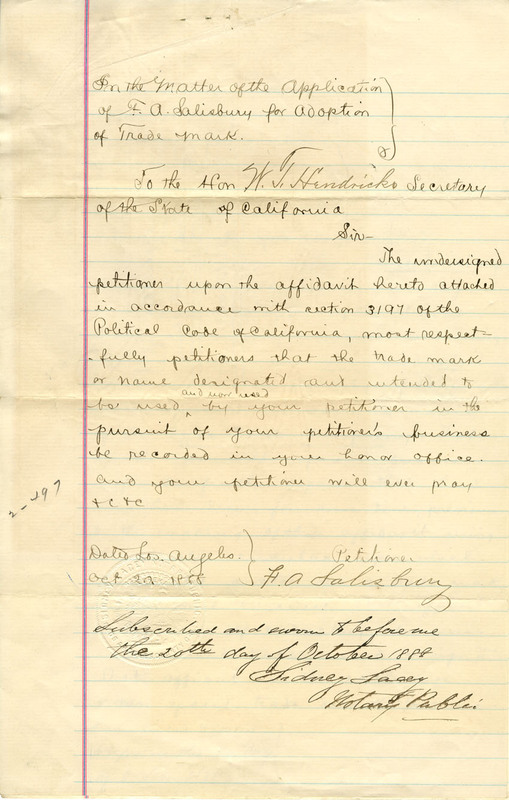 In the Matter of the Application
of F. A. Salisbury for Adoption
of Trade Mark.
To the Hon W. T. Hendricks Secretary
of the State of California
Sir-
The undersigned
petitioner upon the affidavit hereto attached
in accordance with section 3197 of the
Political Code of California, most respect=
fully petitioners that the trade mark
or name designated and intended to
and now used
be used by your petitioner in the
pursuit of your petitioner's business
be recorded in your honor office.
and your petitioner will ever pray
&c &c
2-197
Dated Los Angeles.
Oct 20 1888
Petitioner
F. A Salisbury
Subscribed and sworn to before me
the 20th day of October 1888
Sidney Lacey
Notary Public